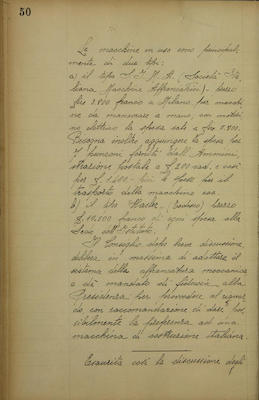 50
Le macchine in uso sono principal-
mente di due tipi:
a) il tipo S.I.M.A. (Società Ita-
liana Macchine Affrancatrici) - prezzo
lire 3.800 franco a Milano per macchi-
ne da manovrare a mano, con motori-
no elettrico la spesa sale a lire 5.500.
Bisogna inoltre aggiungere la spesa per
i punzoni forniti dall'Ammini-
strazione postale a £ 200 cad. e così
per £ 1.600 più le spese per il
trasporto della macchina ecc.
b) il tipo Hasler (svizzero) prezzo
£ 10.500 franco di ogni spesa alla
Sede dell'Istituto.
Il Consiglio dopo breve discussione,
delibera in massima di adottare il
sistema della affrancatura meccanica
e dà mandato di fiducia alla
Presidenza per provvedere al riguar-
do con raccomandazione di dare pos-
sibilmente la preferenza ad una
macchina di costruzione italiana.
Esaurita così la discussione degli